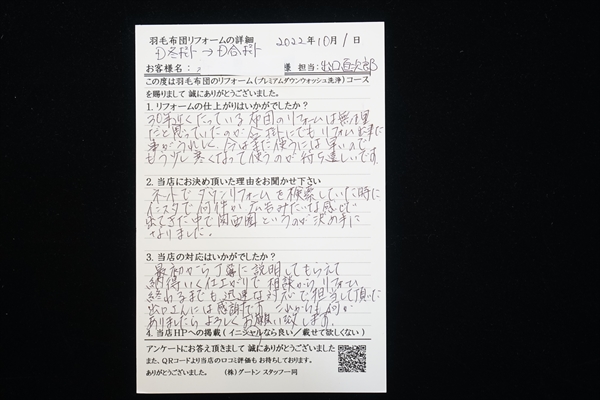 羽毛布団リフォームの詳細
2022年10月1日
D冬ポト→D合ポト
お客様名：
担当：出口
この度は羽毛布団のリフォーム（プレミアムダウンウォッシュ洗浄）コース
を賜りまして 誠にありがとうございました。
1. リフォームの仕上がりはいかがでしたか？
30年近くたっている布団のリフォームは無理
だと思っていたのが今 リフォーム出来た
事がうれしく、今はまだ使うには早いので
もう少し寒くなって使うのが待ち遠しいです。
2. 当店にお決め頂いた理由をお聞かせ下さい
ネットでダウンリフォームを検索していた時に
インスタで何件か広告みたいな感じで
出てきた中で関西圏というのが決め手に
なりました。
3. 当店の対応はいかがでしたか？
最初から丁寧に説明してもらえて
納得いく仕上がりで相談からリフォーム
終わるまでも迅速な対応で担当して頂いた
出口さんには感謝です。これからも何か
ありましたらよろしくお願い致します。
4. 当店HPへの掲載（イニシャルなら良い／載せて欲しくない）
アンケートにお答え頂きまして 誠にありがとうございました。
また、QRコードより当店の口コミ評価も お待ちしております。
ありがとうございました。 （株）グートン スタッフ一同